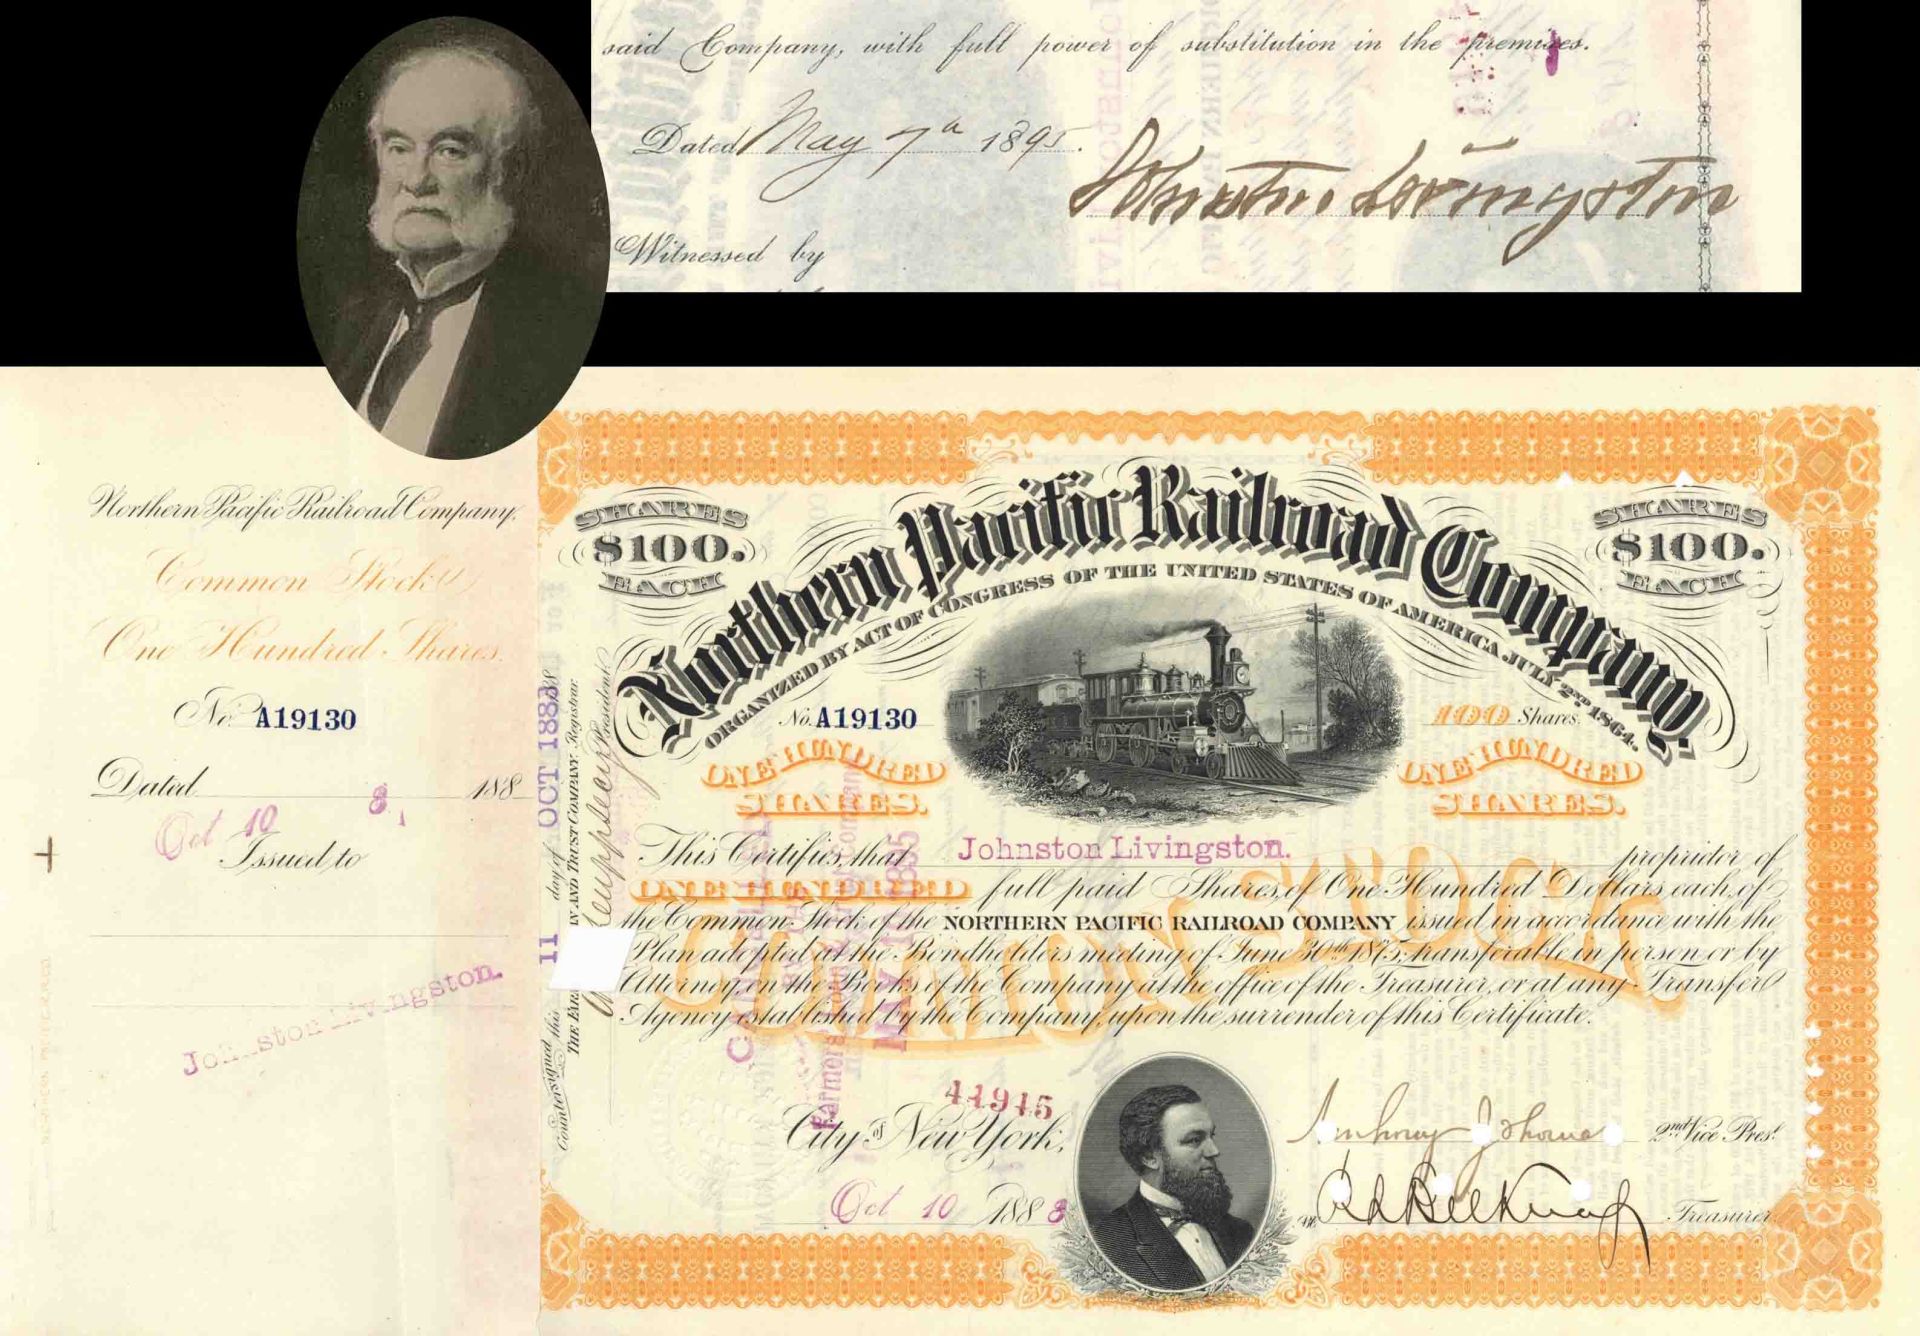 said Company, with full power of substitution in the premises.
Dated May 7th 1895.
Johnston Livingston
Witnessed by
Northern Pacific Railroad Company.
Common Stock
One Hundred Shares.
No. A19130
Dated 188
Oct 10 3
Issued to
Johnston Livingston.
Countersigned this 11 day of OCT 1883 188
President
SHARES
$100.
EACH
SHARES
$100.
EACH
Northern Pacific Railroad Company
ORGANIZED BY ACT OF CONGRESS OF THE UNITED STATES OF AMERICA JULY 2ND 1864.
No. A19130
100 Shares.
ONE HUNDRED
SHARES.
ONE HUNDRED
SHARES.
This Certifies, that Johnston Livingston. proprietor of
ONE HUNDRED full paid Shares, of One Hundred Dollars each, of
the Common Stock of the NORTHERN PACIFIC RAILROAD COMPANY issued in accordance with the
Plan adopted at the Bondholders meeting of June 30th 1875, transferable in person or by
Attorney, on the Books of the Company at the office of the Treasurer, or at any Transfer
Agency established by the Company, upon the surrender of this Certificate.
COMMON STOCK
44945
City of New York,
Oct 10 1883
2nd Vice Prest.
Treasurer